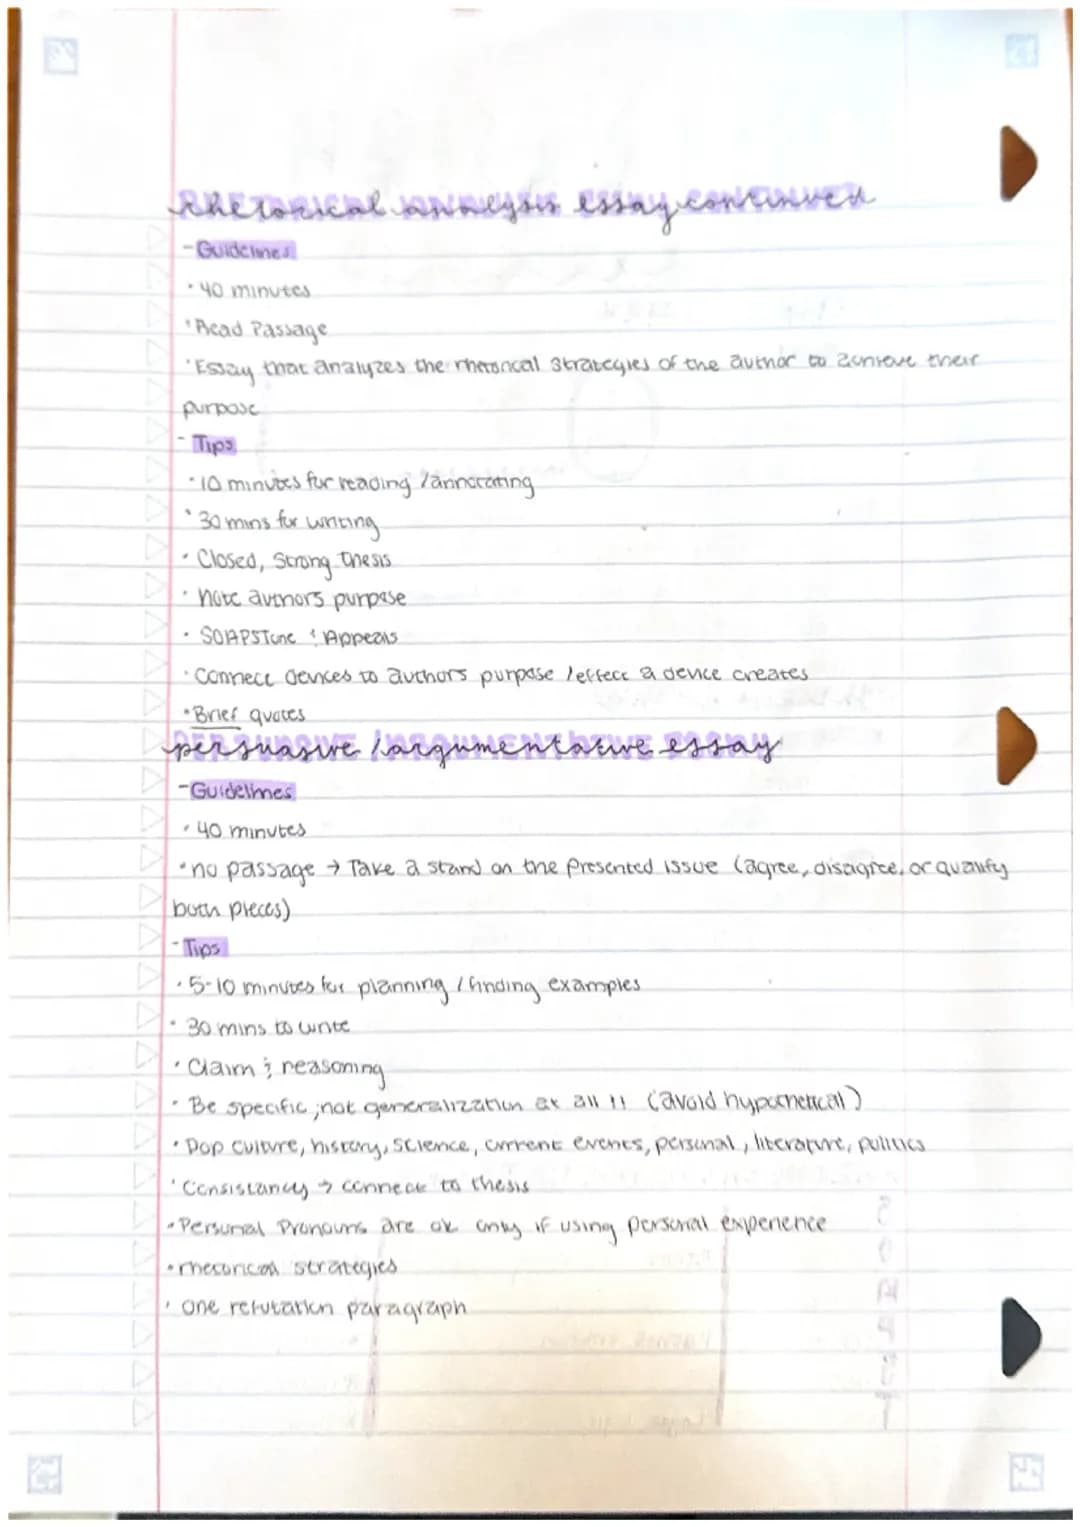 rhetorical analysis essay continued
- Guidelines
· 40 minutes
· Read Passage
· Essay that analyzes the rhetorical strategies of the author to achieve their
purpose
- Tips
· 10 minutes for reading / annotating
· 30 mins for writing
· Closed, Strong thesis
· note authors purpose
· SOAPSTone & Appeals
· Connect devices to authors purpose / effect a device creates
· Brief quotes
persuasive / argumentative essay
- Guidelines
· 40 minutes
· no passage → Take a stand on the presented issue (agree, disagree, or qualify
both pieces)
- Tips
· 5-10 minutes for planning / finding examples
· 30 mins to write
· Claim & reasoning
· Be specific, not generalization at all !! (avoid hypothetical)
· Pop culture, history, science, current events, personal, literature, politics
· Consistancy → connect to thesis
· Personal Pronouns are ok only if using personal experience
· rhetorical strategies
· one refutation paragraph